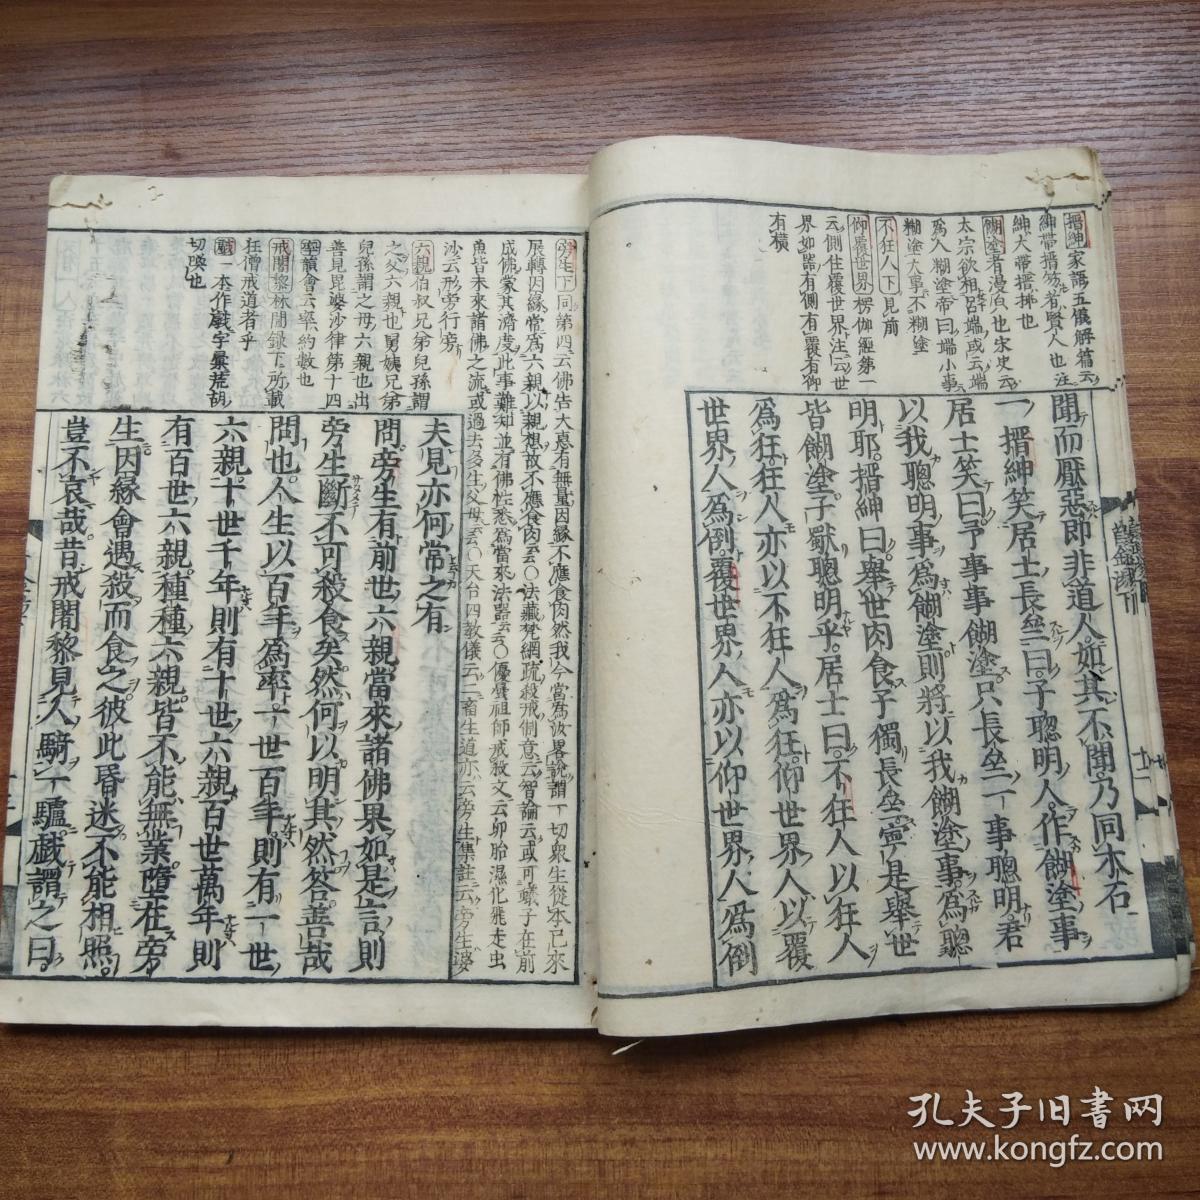 搢紳家語五儀解篇云
紳帶搢笏者賢人也注
紳大帶搢挿也
餬塗者漫汚也宋史云
太宗欲相呂端或云端
爲人糊塗帝曰端小事
糊塗大事不糊塗
不狂人下見前
仰覆世界楞伽經第一
云側住覆世界注云世
界如器有側有覆有仰
有橫
聞而厭惡即非道人如其不聞乃同木石
一搢紳笑居士長坐曰子聰明人作餬塗事
居士笑曰予事事餬塗只長坐一事聰明君
以我聰明事爲餬塗則將以我餬塗事爲聰
明耶搢紳曰舉世肉食子獨長坐寧是舉世
皆餬塗子獸聰明乎居士曰不狂人以狂人
爲狂狂人亦以不狂人爲狂仰世界人以覆
世界人爲倒覆世界人亦以仰世界人爲倒
旁生下同第四云佛告大慧有無量因緣不應食肉然我今當爲汝畧說謂一切衆生從本已來
展轉因緣常爲六親以親想故不應食肉云〇法藏梵網疏殺戒制意云智論云或可蟻子在前
成佛蒙其濟度此事難知並有佛性悉爲當來法器云〇優曇祖師戒殺文云卵胎濕化飛走虫
魚皆未來諸佛之流或過去多生父母云〇天台四教儀云二畜生道亦云旁生集註云旁生婆
沙云形旁行旁
六親伯叔兄弟兒孫謂
之父六親也舅姨兄弟
兒孫謂之母六親也出
善見毘婆沙律第十四
率韻會云率約數也
戒闍黎林間錄下所載
狂僧戒道者乎
戲一本作戲字彙荒胡
切喚也
夫見亦何常之有
問旁生有前世六親當來諸佛果如是言則
旁生斷不可殺食矣然何以明其然答善哉
問也人生以百年爲率一世百年則有一世
六親十世千年則有十世六親百世萬年則
有百世六親種種六親皆不能無業墮在旁
生因緣會遇殺而食之彼此昏迷不能相照
豈不哀哉昔戒闍黎見人騎一驢戲謂之曰
孔夫子旧书网
www.kongfz.com